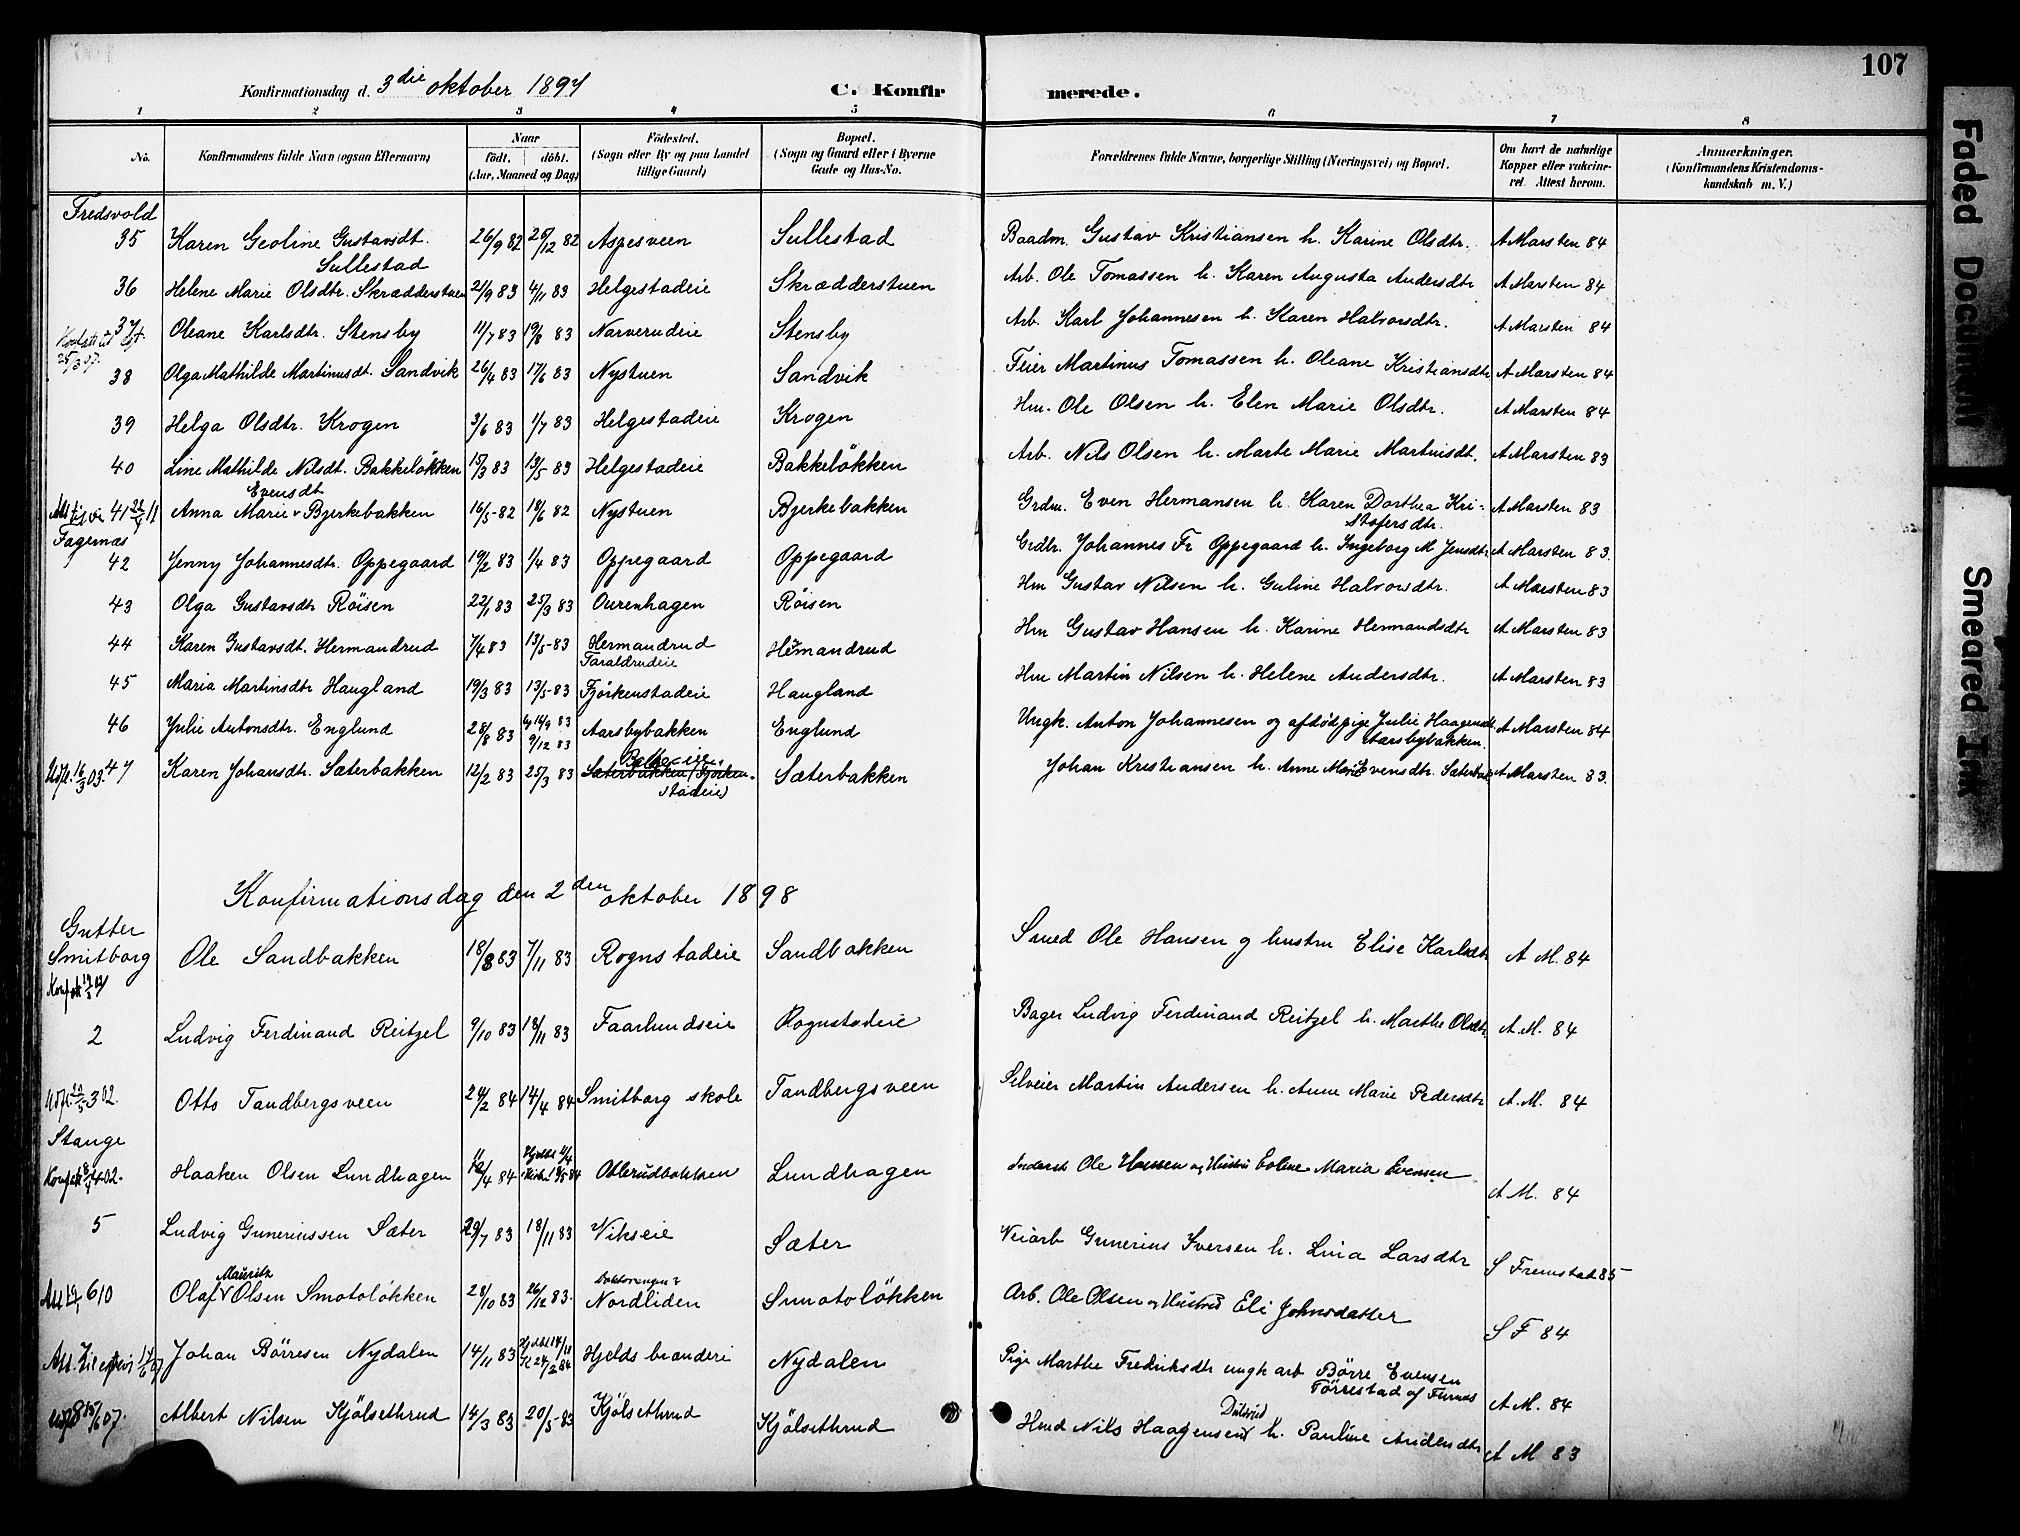 107
Konfirmationsdag d. 3die oktober 1897 C. Konfirmerede.
1 2 3 4 5 6 7 8
No. Konfirmandens fulde Navn (ogsaa Efternavn) Naar födt. döbt. (Aar, Maaned og Dag) Födested. (Sogn eller By og paa Landet tillige Gaard) Bopæl. (Sogn og Gaard eller i Byerne Gade og Hus-No. Forældrenes fulde Navne, borgerlige Stilling (Næringsvei) og Bopæl. Om havt de naturlige Kopper eller vakcineret. Attest herom. Anmærkninger. (Konfirmandens Kristendomskundskab m. V.)
Fredsvold
35 Karen Geoline Gustavsdt. Sullestad 26/9 82 25/12 82 Aspesveen Sullestad Baadm. Gustav Kristiansen h. Karine Olsdtr. A Marsten 84
36 Helene Marie Olsdtr. Skrædderstuen 21/9 83 4/11 83 Helgestadeie Skrædderstuen Arb. Ole Tomassen h. Karen Augusta Andersdtr A Marsten 84
37 Oleane Karlsdtr. Stensby 11/7 83 19/8 83 Narverudeie Stensby Arb. Karl Johannesen h. Karen Halvorsdtr. A Marsten 84
25/3 07.
38 Olga Mathilde Martinusdt. Sandvik 26/4 83 17/6 83 Nystuen Sandvik Feier Martinus Tomassen h. Oleane Kristiansdtr A Marsten 84
39 Helga Olsdtr. Krogen 3/6 83 1/7 83 Helgestadeie Krogen Hm. Ole Olsen h. Elen Marie Olsdtr. A Marsten 84
40 Line Mathilde Nilsdt. Bakkeløkken 15/3 83 13/5 83 Helgestadeie Bakkeløkken Arb. Nils Olsen h. Marte Marie Martinisdt. A Marsten 83
41 Anna Marie Evensdt Bjerkebakken 16/5-82 18/6 82 Nystuen Bjerkebakken Grdm. Even Hermansen h. Karen Dorthea Kristofersdtr. A Marsten 83
Fagernæs
42 Jenny Johannesdtr. Oppegaard 19/2 83 1/4 83 Oppegaard Oppegaard Grdbr. Johannes Fr Oppegaard h. Ingeborg M Jensdtr A Marsten 83.
43 Olga Gustavsdtr Røisen 22/1 83 25/3 83 Ourenhagen Røisen Hm Gustav Nilsen h. Guline Halvorsdtr. A Marsten 83
44 Karen Gustavsdt. Hermandrud 7/4 83 13/5-83 Hermandrud Taraldrudeie Hermandrud Hm Gustav Hansen h. Karine Hermandsdtr A Marsten 83
45 Maria Martinsdtr Haugland 19/3 83 13/5-83 Fjørkenstadeie Haugland Hm Martin Nilsen h. Helene Andersdtr. A Marsten 83
46 Julie Antonsdtr. Englund 28/8 83 14/9 83 9/12 83 Aarsbybakken Englund Ungk. Anton Johannesen og afdöd pige Julie Haagensdt Aarsbybakken. A Marsten 84
Udfl. 16/3 03. 47 Karen Johansdtr. Sæterbakken 12/2 83 25/3 83 Sæterbakken (Fjørkenstadeie) Sæterbakken Johan Kristiansen h. Anne Marie Evensdtr. Sæterbak A Marsten 83.
Konfirmationsdag den 2den oktober 1898
Gutter
Smitborg Ole Sandbakken 18/8 83 7/11 83 Rognstadeie Sandbakken Smed Ole Hansen og hustru Elise Karlsdtr A M. 84
2 Ludvig Ferdinand Reitzel 9/10 83 18/11 83 Faarlundseie Rognstadeie Bager Ludvig Ferdinand Reitzel h. Marthe Olsdtr A.M. 84
3 Otto Tandbergsveen 24/2 84 14/4 84 Smitborg skole Tandbergsveen Selveier Martin Andersen h. Anne Marie Pedersdtr A.M. 84
Stange
4 Haaken Olsen Lundhagen 12/4 84 Hjdbt Lundhagen Ole Hansen og Hustru Maria Evensen A M. 84
5 Ludvig Gunerinssen Sæter 29/7 83 18/11 83 Vikseie Sæter Veiarb Gunerius Iversen h. Lina Larsdtr S Fremstad 85
6 Olaf Mauritz Olsen Smotoløkken 28/10 83 26/12 83. Nordliden Smotoløkken Arb. Ole Olsen og Hustru Eli Johnsdatter S F 84
Johan Børresen Nydalen 14/11 83 Hjdbt 24/2 84 Hjelds brænderi Nydalen Pige Marthe Fredriksdtr ungk arb Børre Evensen Tørrestad af Furnes A M. 84
8 Albert Nilsen Kjølsethrud 14/3 83 20/5-83 Kjølsethrud Kjølsethrud Hmd Nils Haagensen h. Pauline A M 83
Faded Document
Smeared Ink